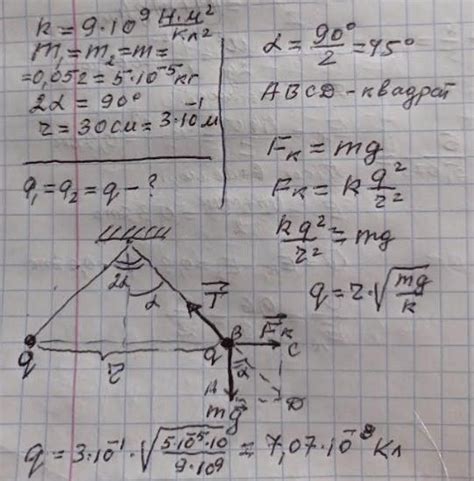 k = 9·10⁹ Н·м²/Кл²
m₁ = m₂ = m =
= 0,05г = 5·10⁻⁵кг
2α = 90°
r = 30см = 3·10⁻¹м
q₁ = q₂ = q - ?
α = 90°/2 = 45°
ABCD - квадрат
Fк = mg
Fк = k q²/r²
kq²/r² = mg
q = r·√(mg/k)
2α
α
T
B
Fк
C
q
q
r
α
A
D
mg
q = 3·10⁻¹·√(5·10⁻⁵·10/9·10⁹) = 7,07·10⁻⁸ Кл